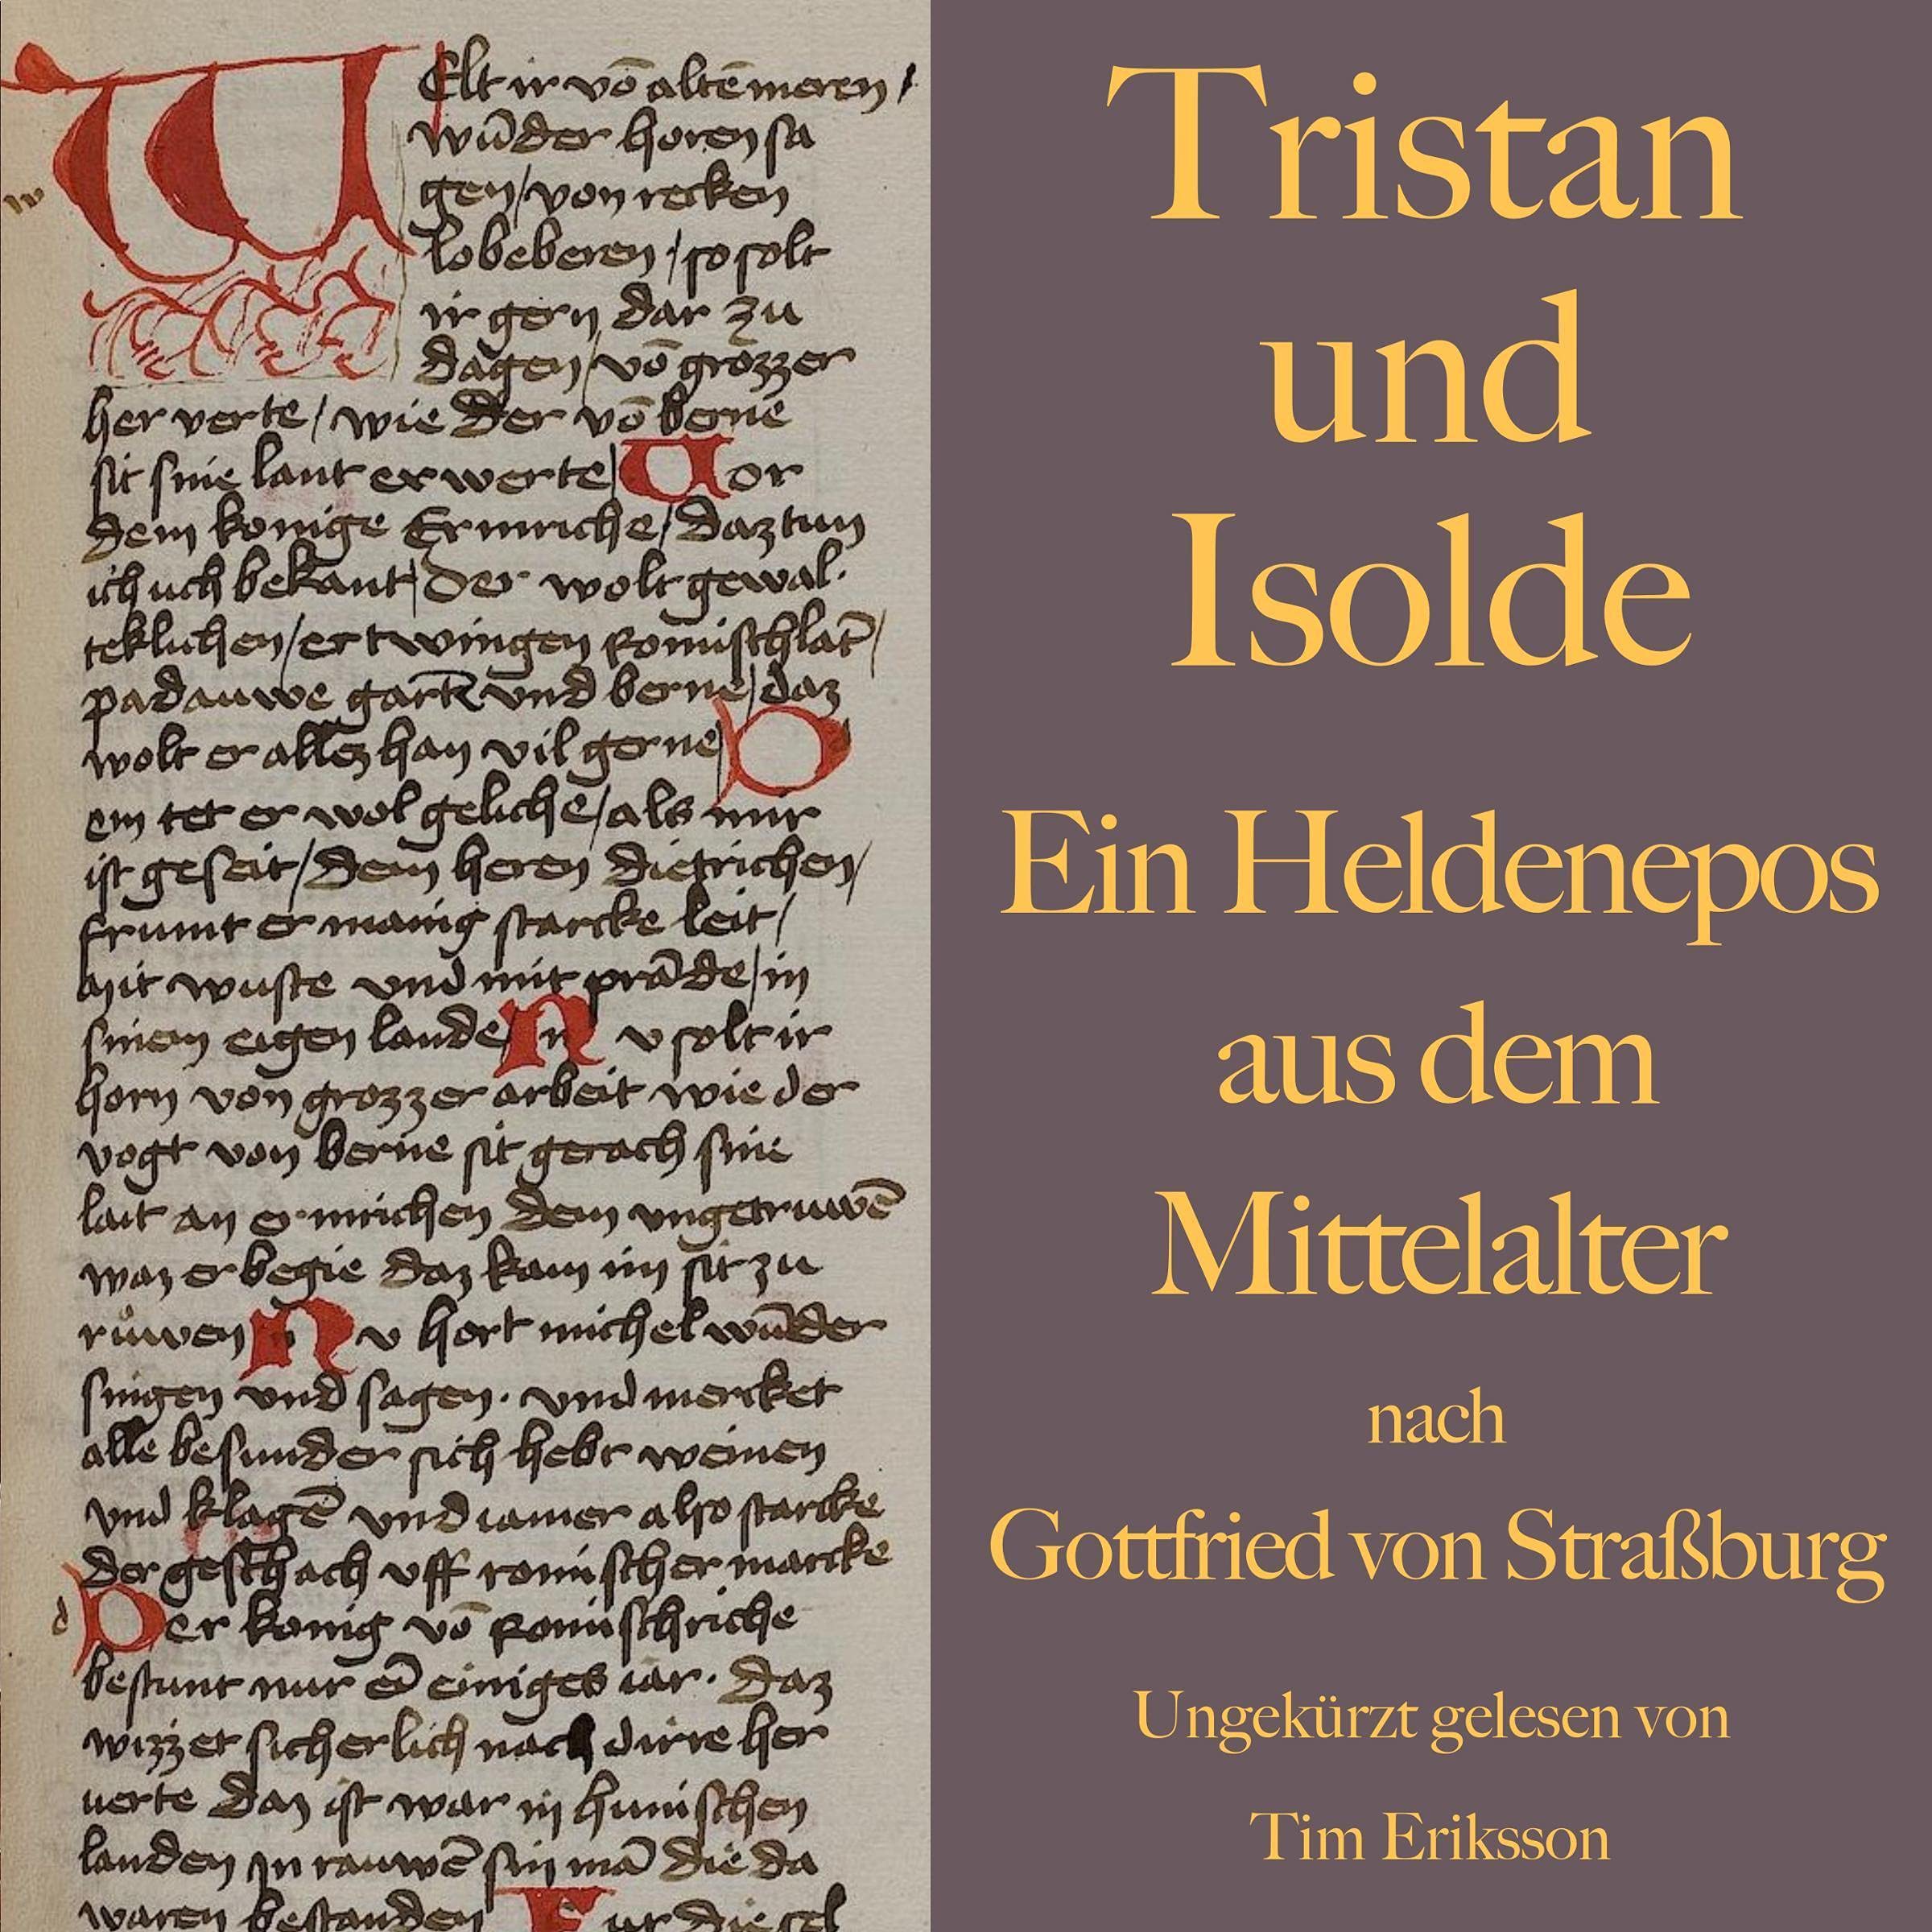 WElt ir vō altē meren /
wūder horen sa
gen / von recken
lobeberen / so solt
ir gern dar zu
dagen / vō grozzer
her verte / wie der vō berne
sit sine lant erwerte / Vor
dem konige Ermriche / Daz tun
ich uch bekant / Der wolt gewal.
teklichen / ertwingen Romischlāt /
padauwe gartē vnd berne / daz
wolt er allez han vil gerne / D
em tet er wol geliche / als mir
ist geseit / Dem heren Dietrichen /
frumt er manig starcke leit /
Mit wuste vnd mit prāde / in
sinem eigen lande / N v solt ir
horn von grozzer arbeit wie der
vogt von berne sit gerach sine
lait an ermrichen dem vngetruwē
waz er begie daz kam im sit zu
ruwen N v hort michel wūder
singen vnd sagen. vnd mercket
alle besunder sich hebt weinen
vnd klagē vnd iamer also starcke
der geschach vff romischer marcke
Der konig vō Romischriche
bestunt nur ein einiges iar. Daz
wizzet sicherlich nach dirre her
uerte Daz ist war in hunischen
landen In rauwē sin mā die da
waren bestanden
Tristan
und
Isolde
Ein Heldenepos
aus dem
Mittelalter
nach
Gottfried von Straßburg
Ungekürzt gelesen von
Tim Eriksson